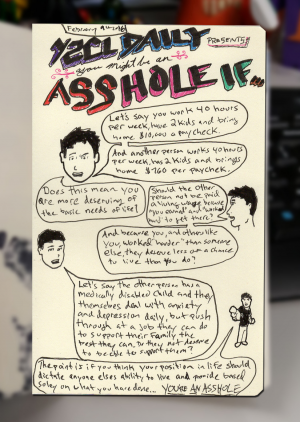 February 9th 2016
YZCL DAILY PRESENTS!!
You might be an
ASSHOLE IF...
Let's say you work 40 hours
per week, have 2 kids and bring
home $10,000 a paycheck.
And another person works 40 hours
per week, has 2 kids and brings
home $760 per paycheck.
Does this mean you
are more deserving of
the basic needs of life?
Should the other
person not be paid
a living wage because
"you earned" and "worked
hard" to get there?
And because you, and others like
you, "worked harder" than someone
else, they deserve less of a chance
to live than you do?
Let's say the other person has a
medically disabled child and they
themselves deal with anxiety
and depression daily, but push
through at a job they can do
to support their family the
best they can. Do they not deserve
to be able to support them?
The point is if you think your position in life should
dictate anyone elses ability to live and provide based
soley on what you have done... YOU'RE AN ASSHOLE